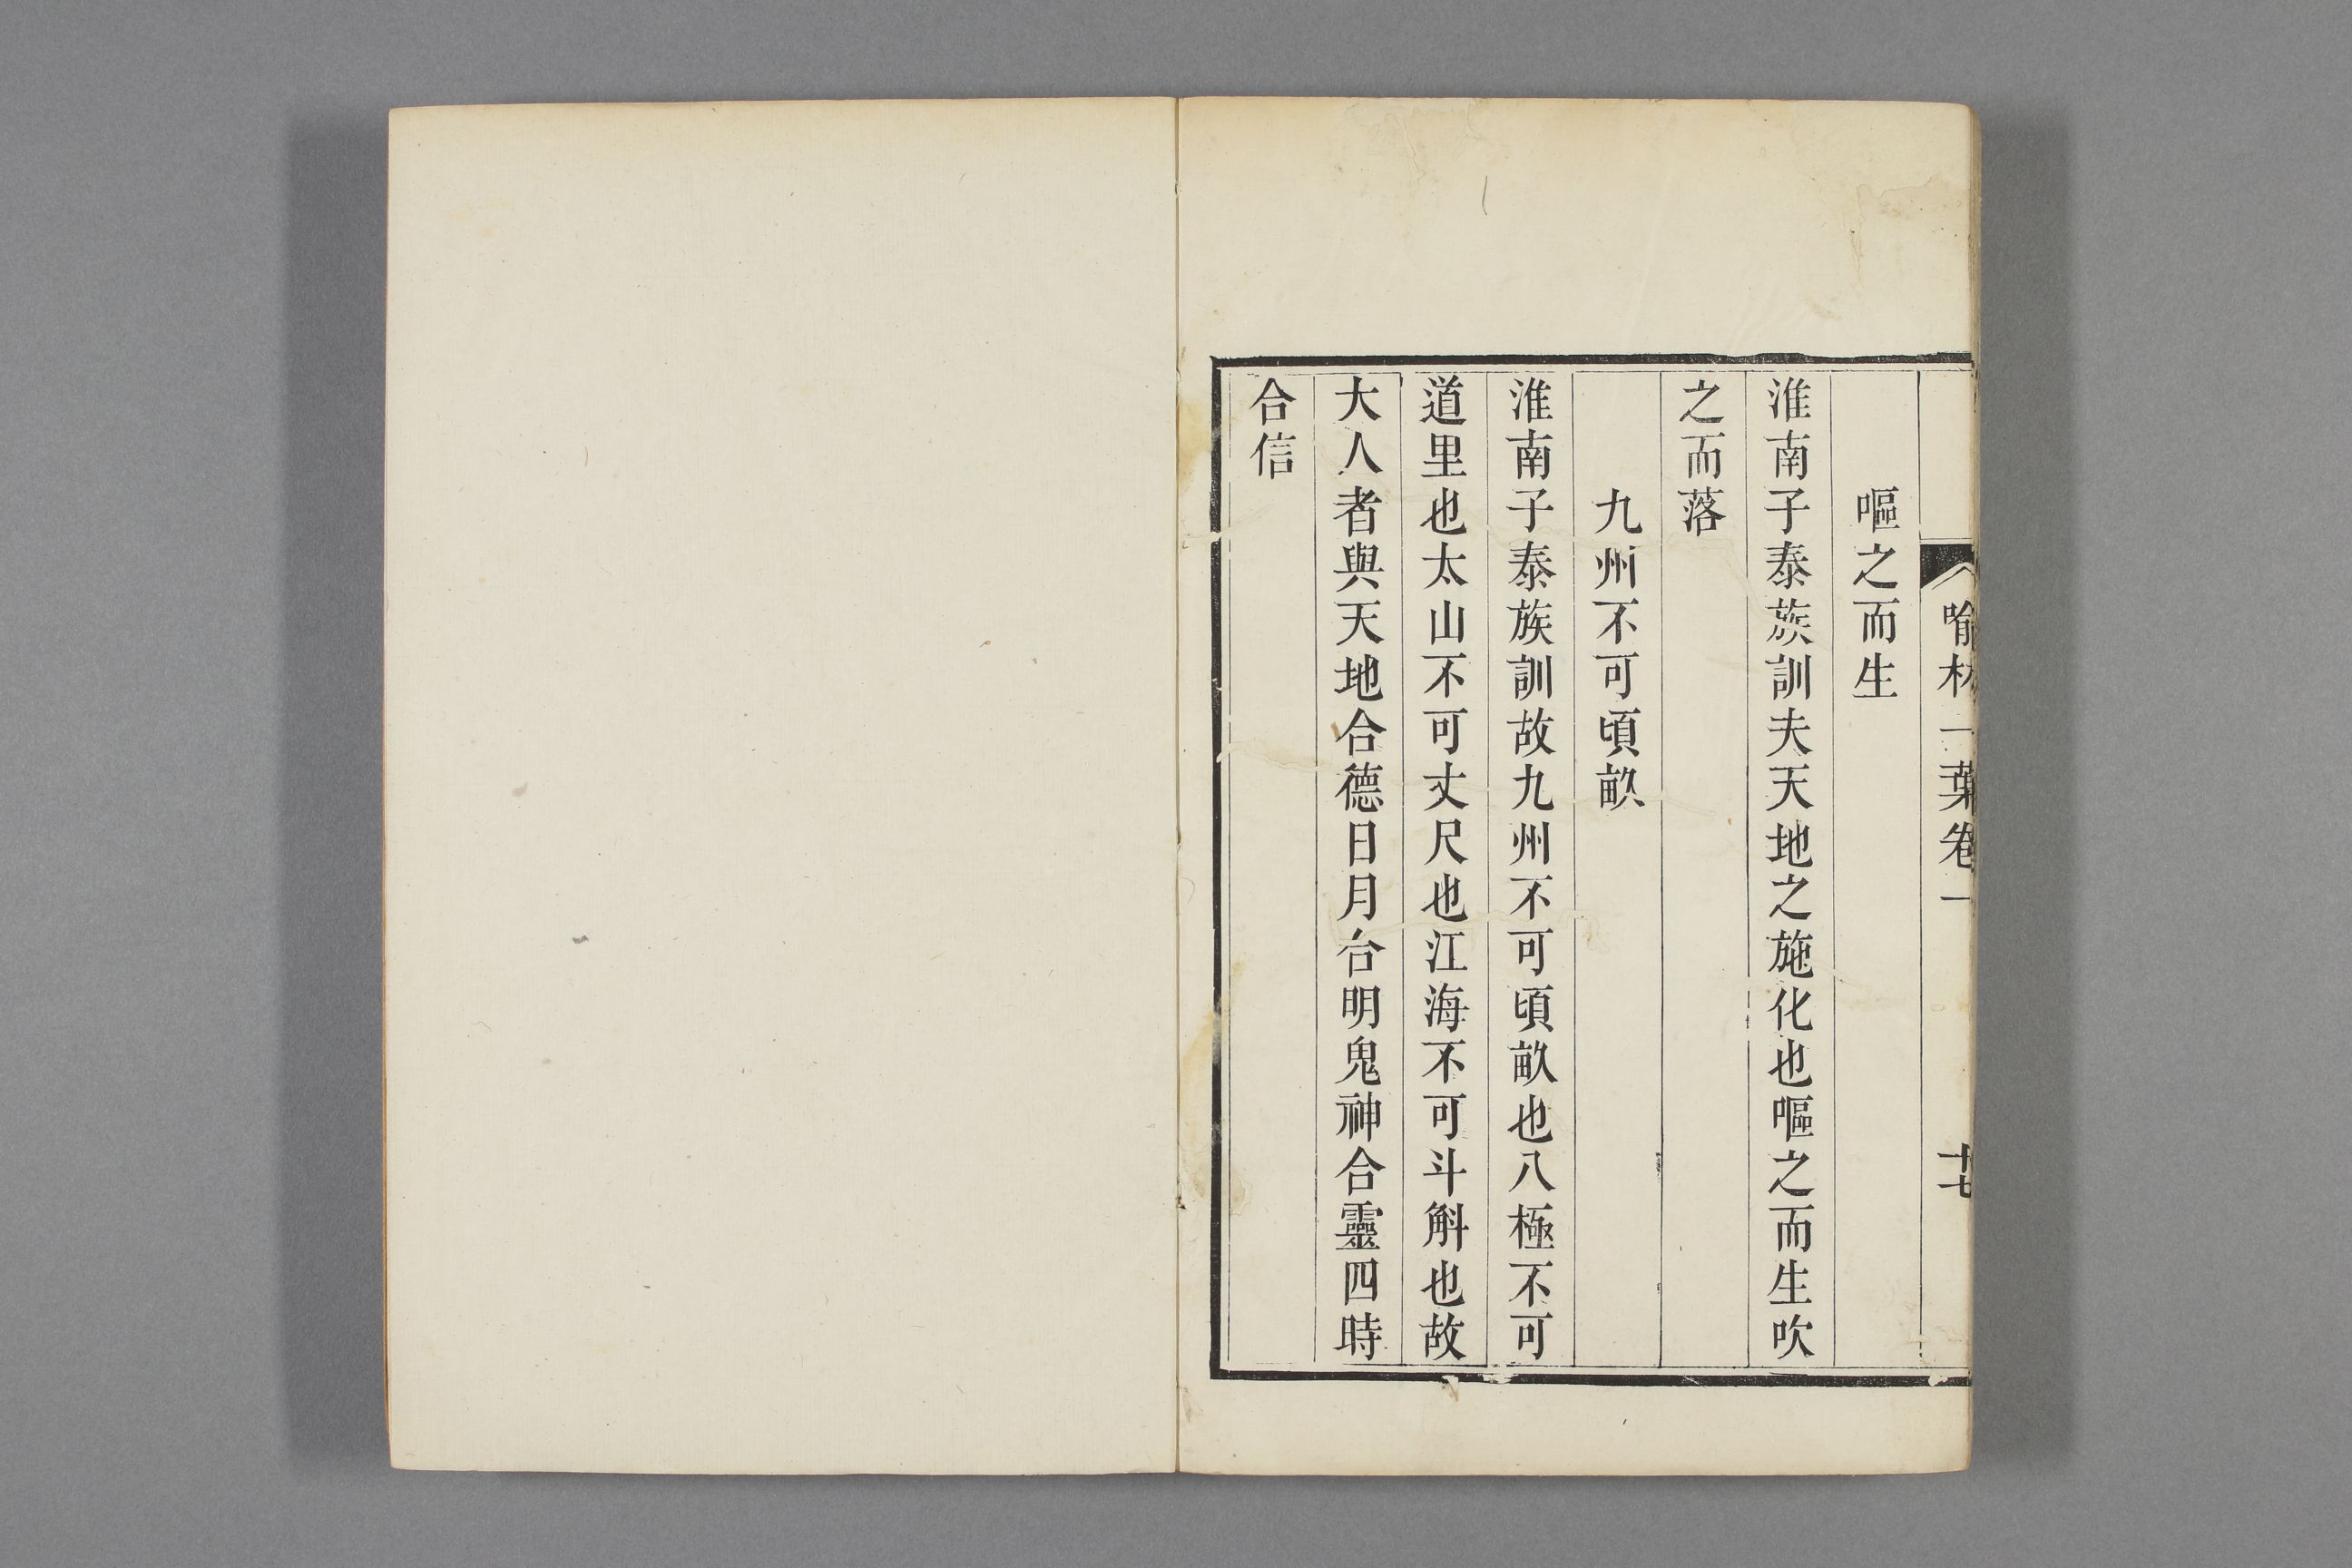 喻林一葉卷一 十七
嘔之而生
淮南子泰族訓夫天地之施化也嘔之而生吹
之而落
九州不可頃畝
淮南子泰族訓故九州不可頃畝也八極不可
道里也太山不可丈尺也江海不可斗斛也故
大人者與天地合德日月合明鬼神合靈四時
合信